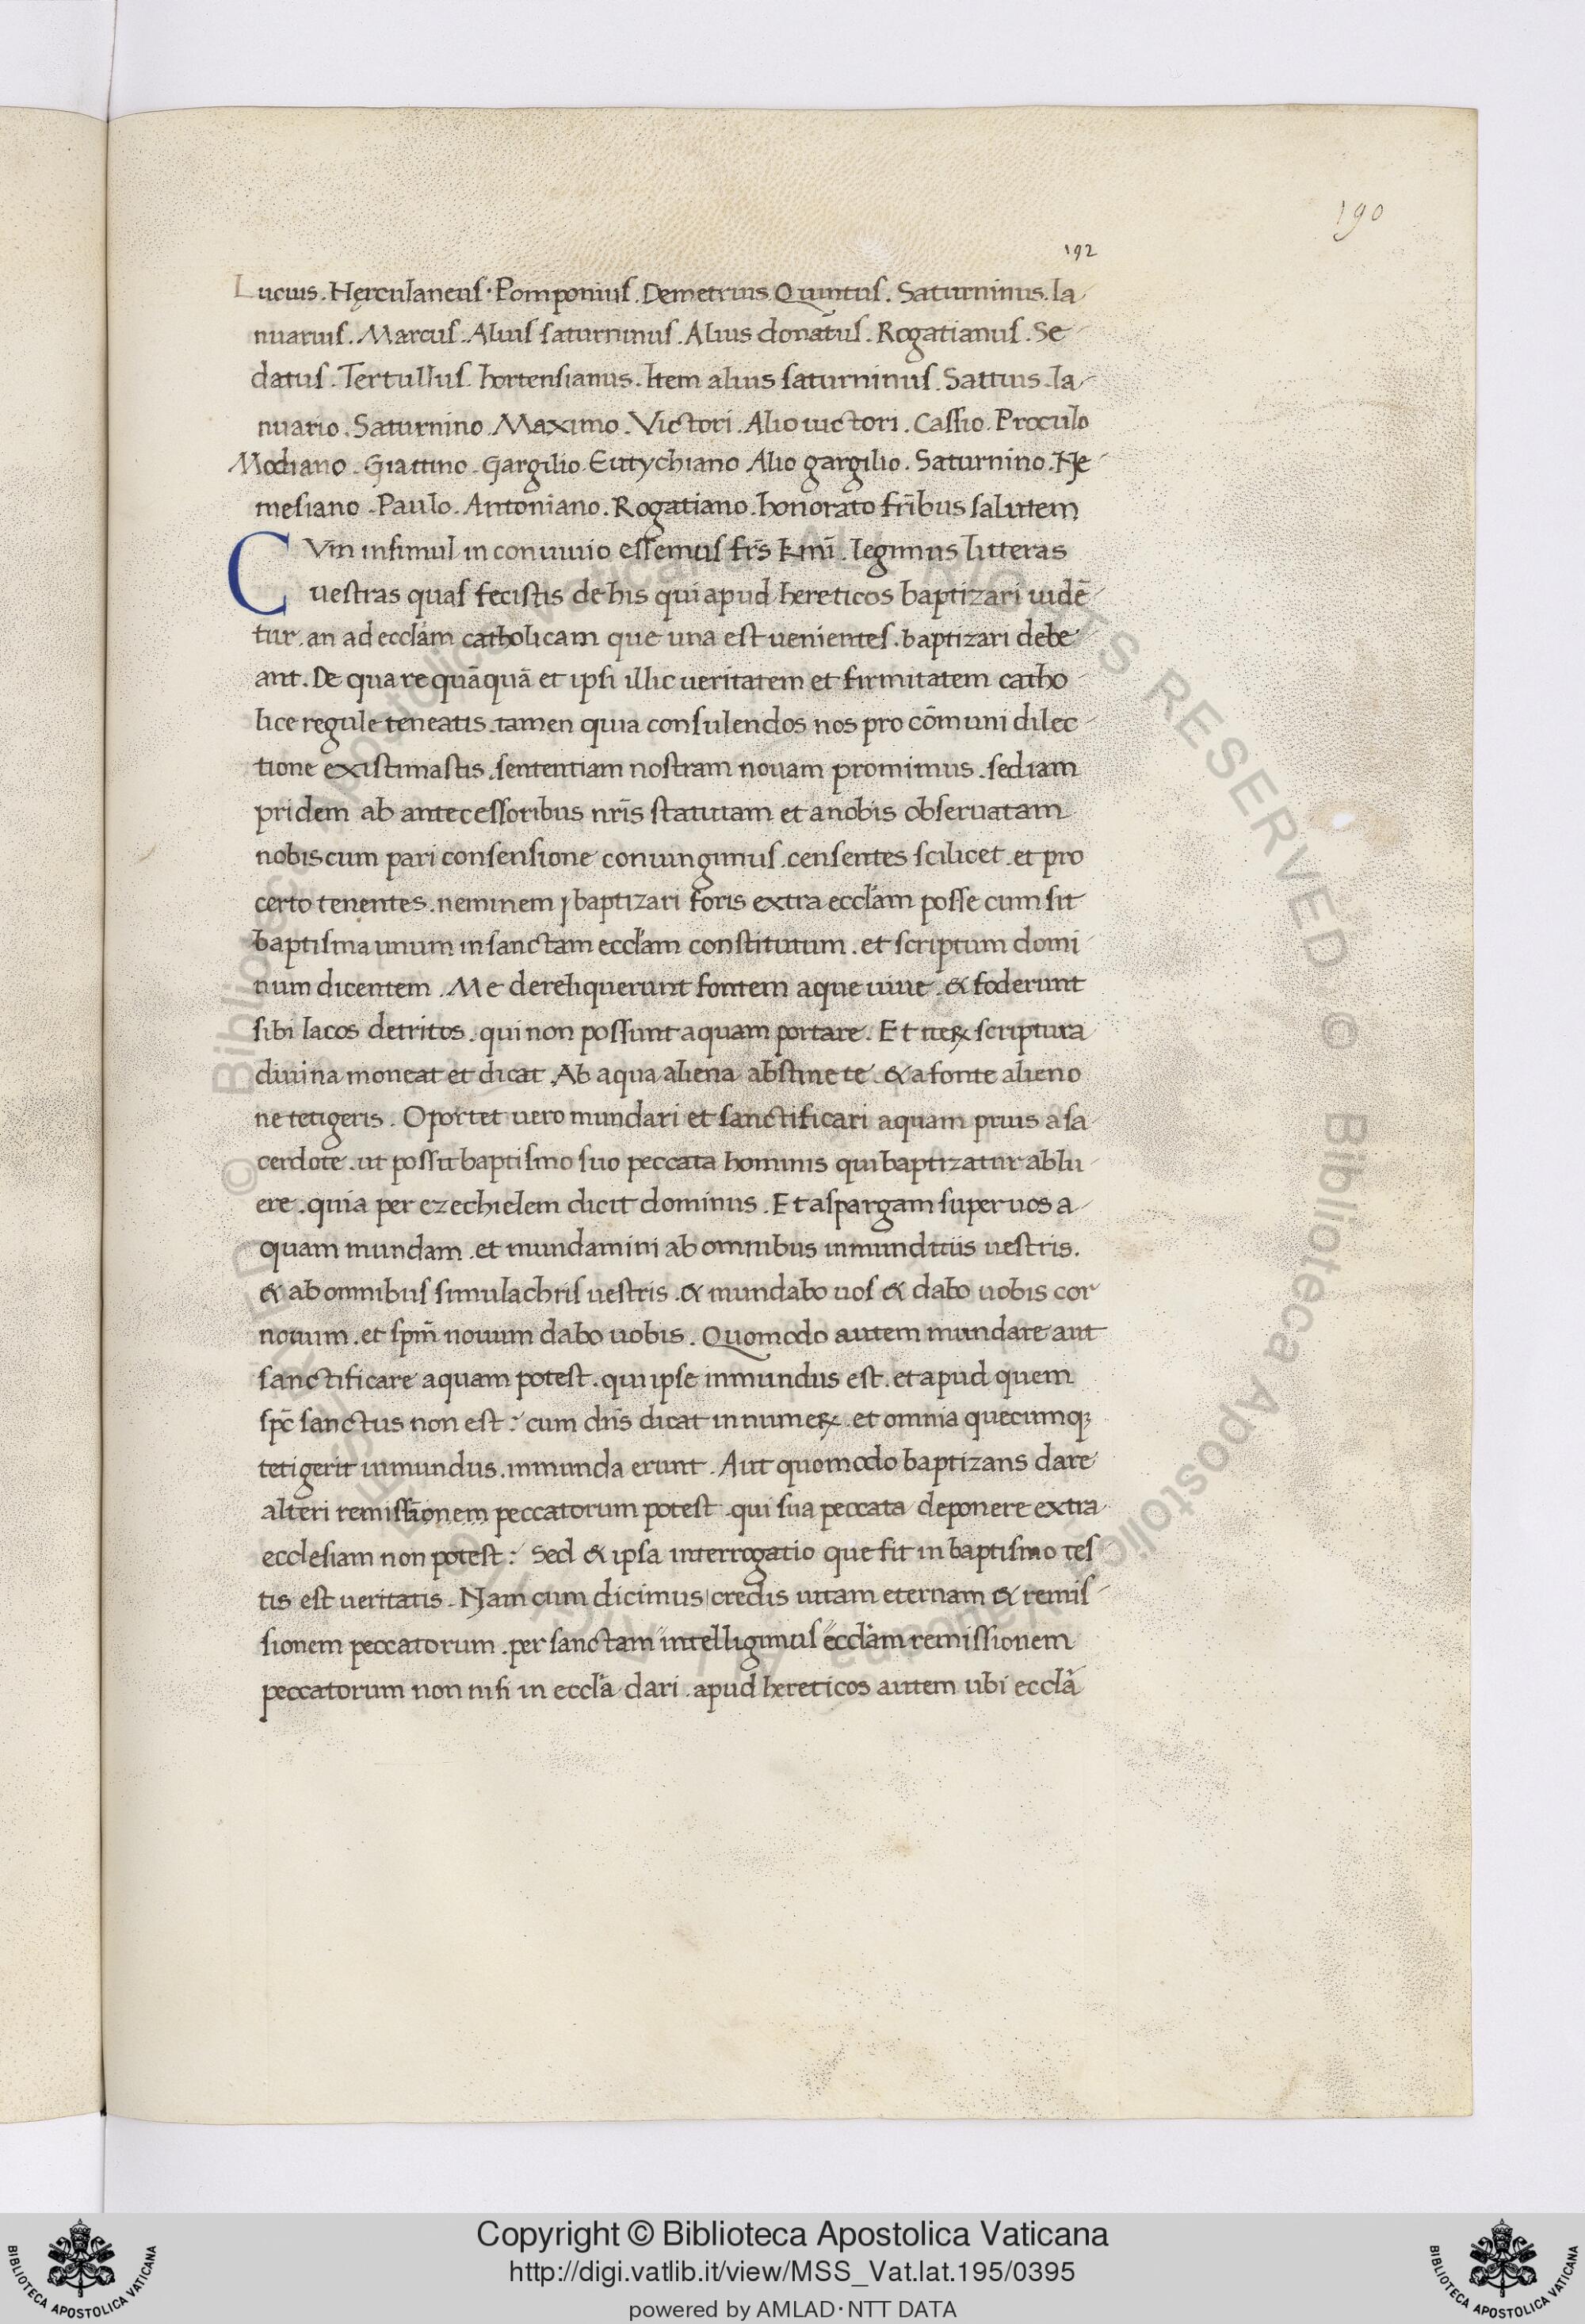 190
192
Lucius. Herculaneus. Pomponius. Demetrius. Quintus. Saturninus. Ia
nuarius. Marcus. Alius saturninus. Alius donatus. Rogatianus. Se
datus. Tertullus. hortensianus. Item alius saturninus. Sattius. Ia
nuario. Saturnino. Maximo. Victori. Alio uictori. Cassio. Proculo
Modiano. Giattino. Gargilio. Eutychiano Alio gargilio. Saturnino. Ne
mesiano. Paulo. Antoniano. Rogatiano. honorato fr̄ibus salutem
CVm insimul in conuiuio essemus fr̄s k̄mi. legimus litteras
uestras quas fecistis de his qui apud hereticos baptizari uidē
tur. an ad eccl̄am catholicam que una est uenientes. baptizari debe
ant. De qua re quāquā et ipsi illic ueritatem et firmitatem catho
lice regule teneatis. tamen quia consulendos nos pro cōmuni dilec
tione existimastis. sententiam nostram nouam promimus. sed iam
pridem ab antecessoribus nr̄is statutam et a nobis obseruatam
nobiscum pari consensione coniungimus. censentes scilicet. et pro
certo tenentes. neminem baptizari foris extra eccl̄am posse cum sit
baptisma unum in sanctam eccl̄am constitutum. et scriptum domi
num dicentem. Me dereliquerunt fontem aque uiue. & foderunt
sibi lacos detritos. qui non possunt aquam portare. Et iteꝝ scriptura
diuina moneat et dicat. Ab aqua aliena abstine te. & a fonte alieno
ne tetigeris. Oportet uero mundari et sanctificari aquam prius a sa
cerdote. ut possit baptismo suo peccata hominis qui baptizatur ablu
ere. quia per ezechielem dicit dominus. Et aspargam super uos a
quam mundam. et mundamini ab omnibus inmunditiis uestris.
& ab omnibus simulachris uestris. & mundabo uos & dabo uobis cor
nouum. et sp̄m nouum dabo uobis. Quomodo autem mundare aut
sanctificare aquam potest. qui ipse inmundus est. et apud quem
sp̄c sanctus non est: cum dn̄s dicat in numeꝝ. et omnia quecumqꝫ
tetigerit inmundus. inmunda erunt. Aut quomodo baptizans dare
alteri remissionem peccatorum potest. qui sua peccata deponere extra
ecclesiam non potest: Sed & ipsa interrogatio que fit in baptismo tes
tis est ueritatis. Nam cum dicimus credis uitam eternam & remis
sionem peccatorum. per sanctam intelligimus eccl̄am remissionem
peccatorum non nisi in eccl̄a dari. apud hereticos autem ubi eccl̄a
© Biblioteca Apostolica Vaticana ALL RIGHTS RESERVED
© Biblioteca Apostolica Vaticana ALL RIGHTS RESERVED
Copyright © Biblioteca Apostolica Vaticana
http://digi.vatlib.it/view/MSS_Vat.lat.195/0395
powered by AMLAD·NTT DATA
BIBLIOTECA APOSTOLICA VATICANA
BIBLIOTECA APOSTOLICA VATICANA